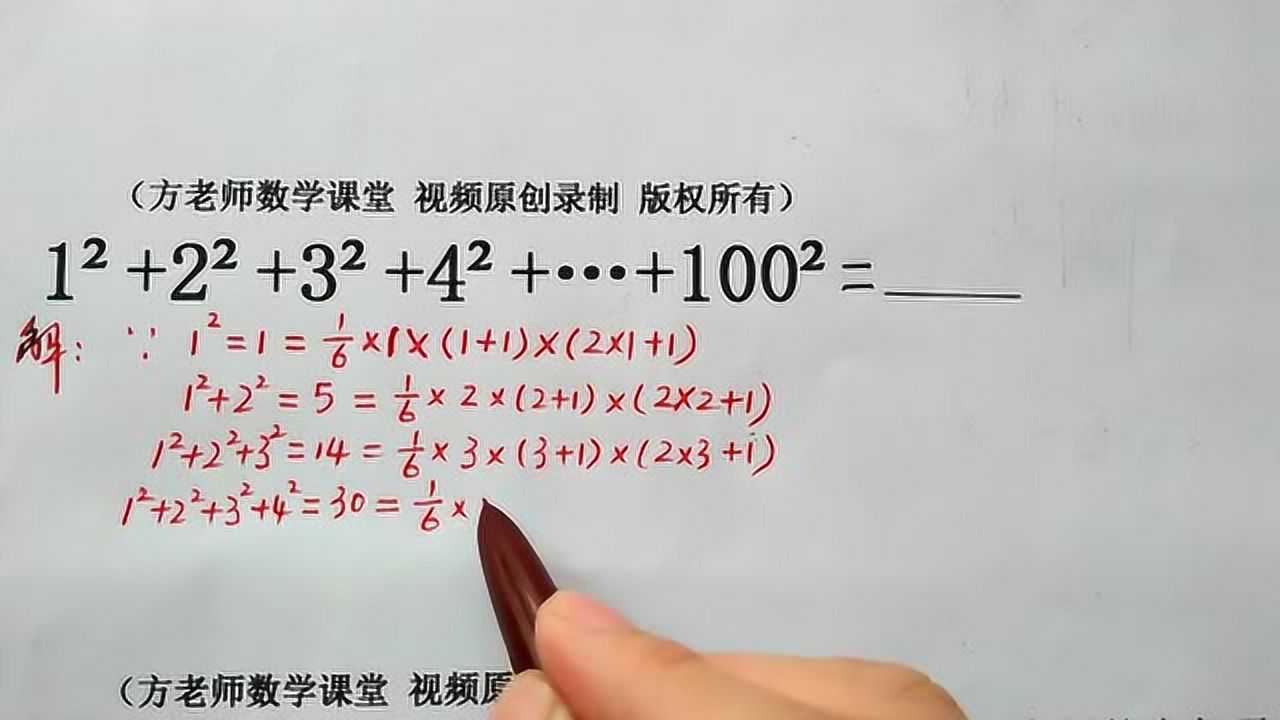 （方老师数学课堂 视频原创录制 版权所有）
1²+2²+3²+4²+⋯+100²=____
解：∵ 1²=1=1/6×1×(1+1)×(2×1+1)
1²+2²=5=1/6×2×(2+1)×(2×2+1)
1²+2²+3²=14=1/6×3×(3+1)×(2×3+1)
1²+2²+3²+4²=30=1/6×
（方老师数学课堂 视频原